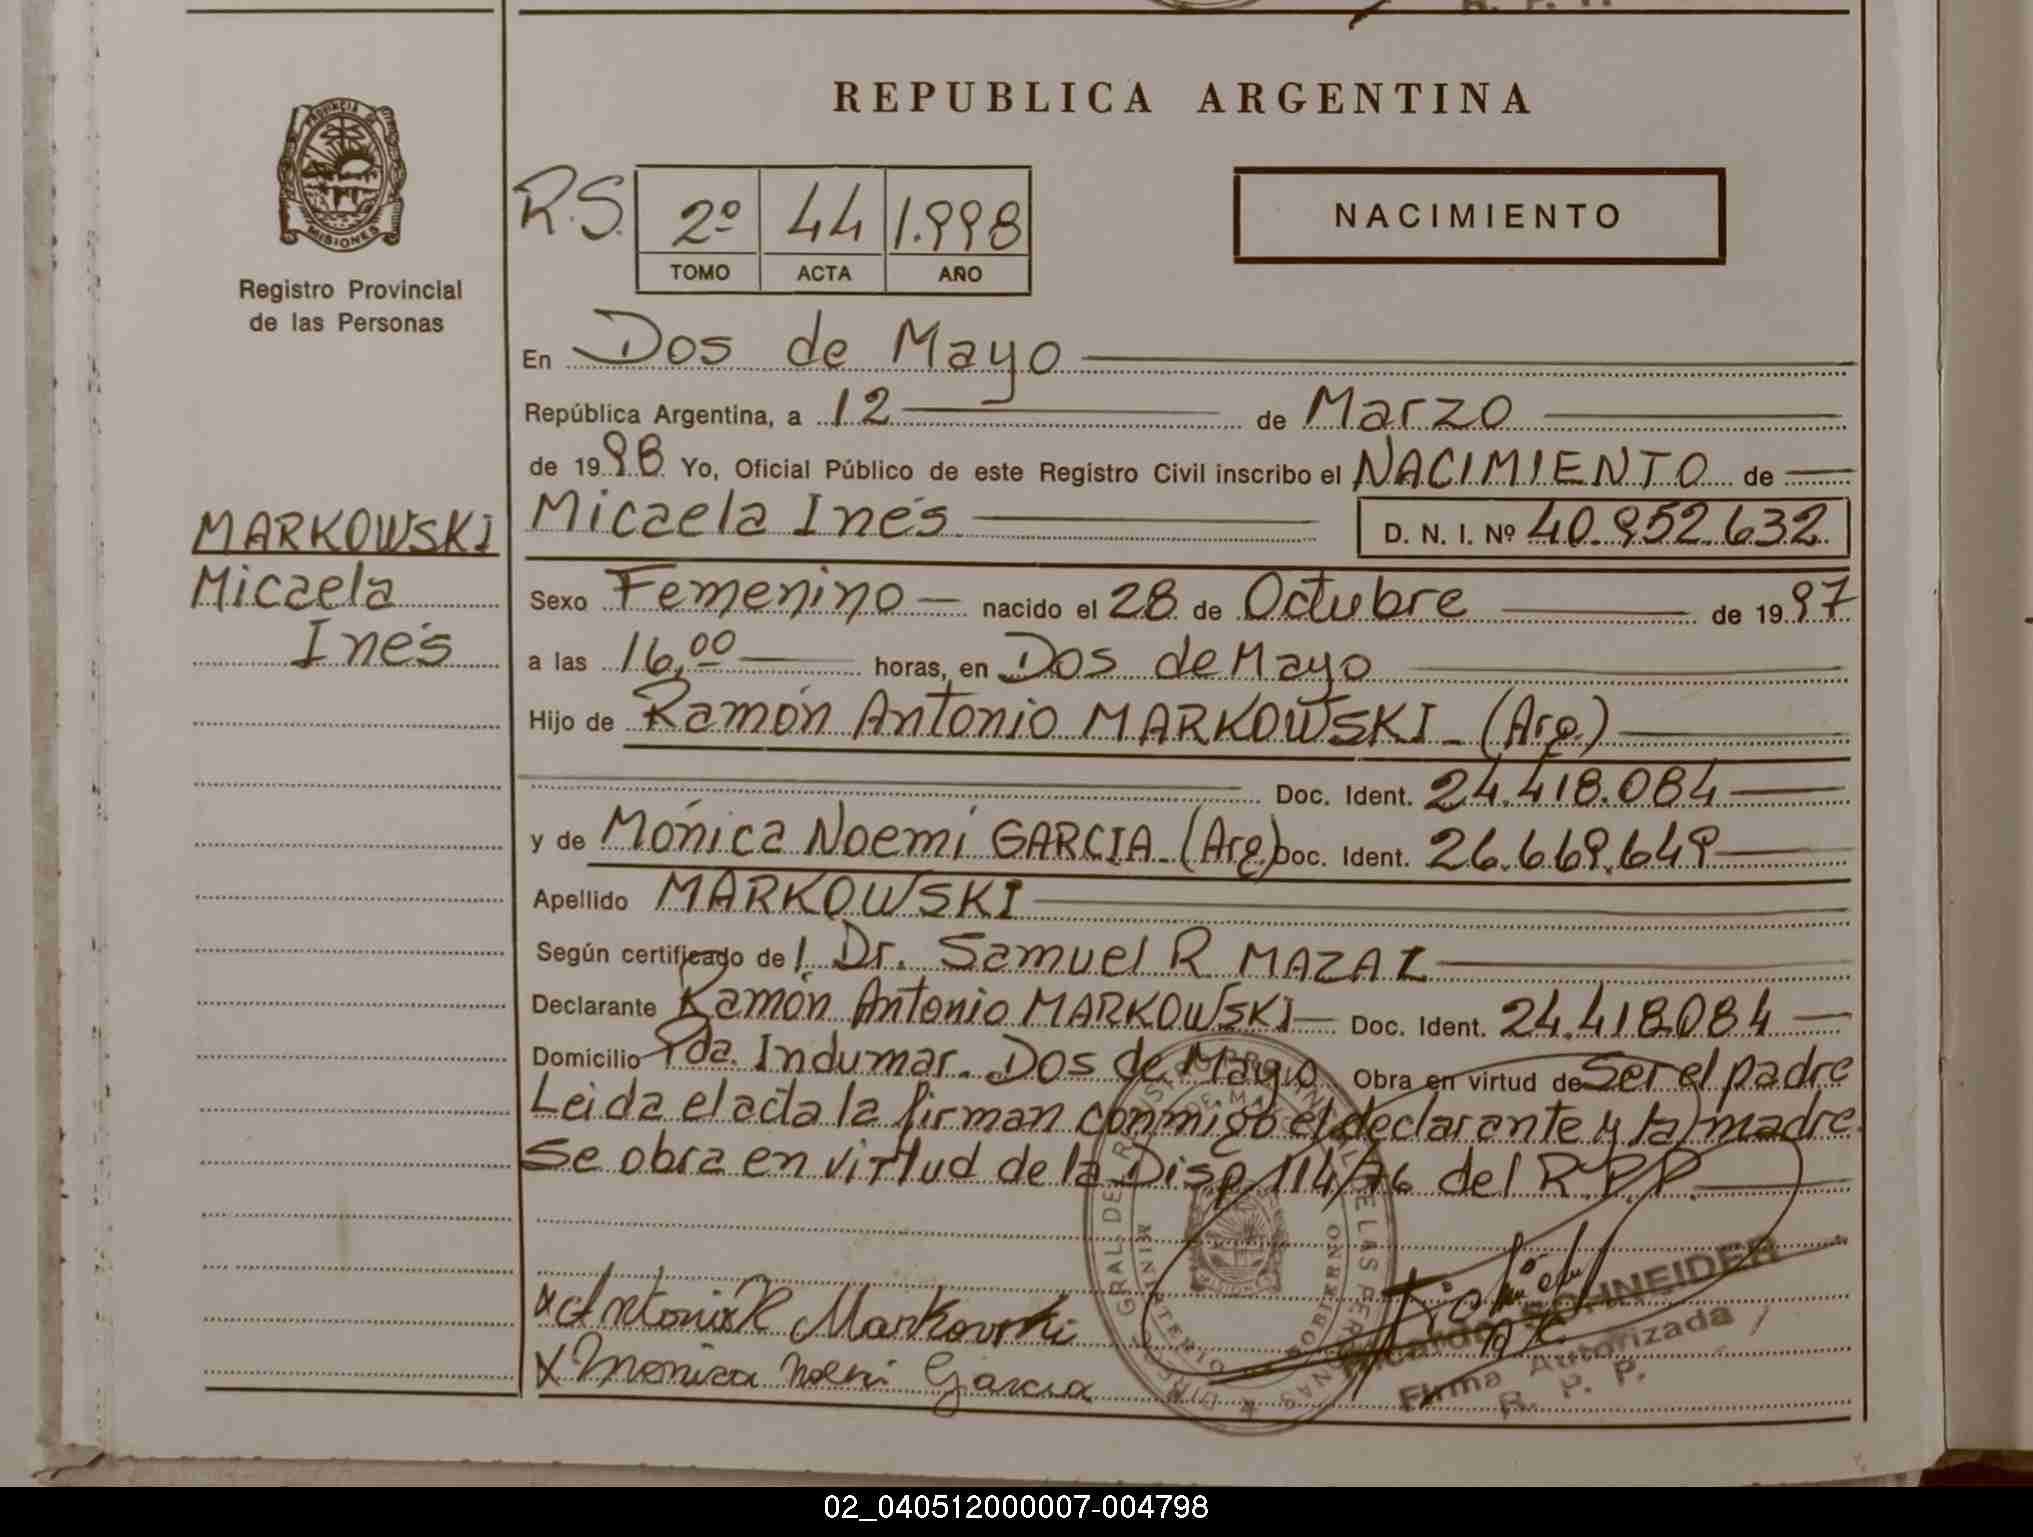 REPUBLICA ARGENTINA
PROVINCIA DE MISIONES
Registro Provincial
de las Personas
R.S. 2º 44 1.998
TOMO ACTA AÑO
NACIMIENTO
En Dos de Mayo
República Argentina, a 12 de Marzo
de 1998 Yo, Oficial Público de este Registro Civil inscribo el NACIMIENTO de
MARKOWSKI
Micaela
Inés
Micaela Inés D. N. I. Nº 40.952.632
Sexo Femenino nacido el 28 de Octubre de 1997
a las 16,00 horas, en Dos de Mayo
Hijo de Ramón Antonio MARKOWSKI - (Arg.)
Doc. Ident. 24.418.084
y de Mónica Noemí GARCIA - (Arg.) Doc. Ident. 26.669.649
Apellido MARKOWSKI
Según certificado de l Dr. Samuel R MAZAL
Declarante Ramón Antonio MARKOWSKI Doc. Ident. 24.418.084
Domicilio Pda. Indumar. Dos de Mayo Obra en virtud de Ser el padre
Leida el acta la firman conmigo el declarante y la madre.
Se obra en virtud de la Disp. 114/76 del R.P.P.
x Antonio R Markowski
x Monica Noemi Garcia
Ricardo SCHNEIDER
Firma Autorizada
R. P. P.
02_040512000007-004798